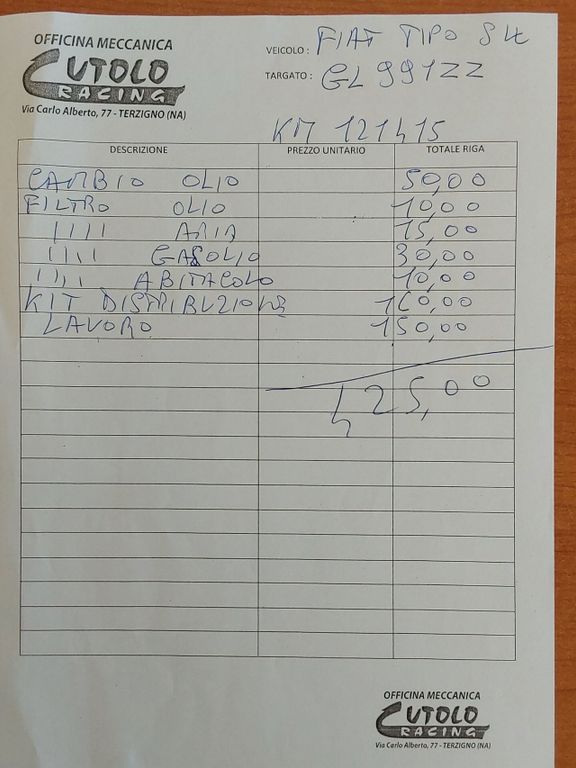 OFFICINA MECCANICA
CUTOLO
RACING
Via Carlo Alberto, 77 - TERZIGNO (NA)
VEICOLO : FIAT TIPO SW
TARGATO : GL 991ZZ
KM 121415
DESCRIZIONE PREZZO UNITARIO TOTALE RIGA
CAMBIO OLIO 50,00
FILTRO OLIO 10,00
'''' ARIA 15,00
'''' GASOLIO 30,00
'''' ABITACOLO 10,00
KIT DISTRIBUZIONE 160,00
LAVORO 150,00
425,00
OFFICINA MECCANICA
CUTOLO
RACING
Via Carlo Alberto, 77 - TERZIGNO (NA)